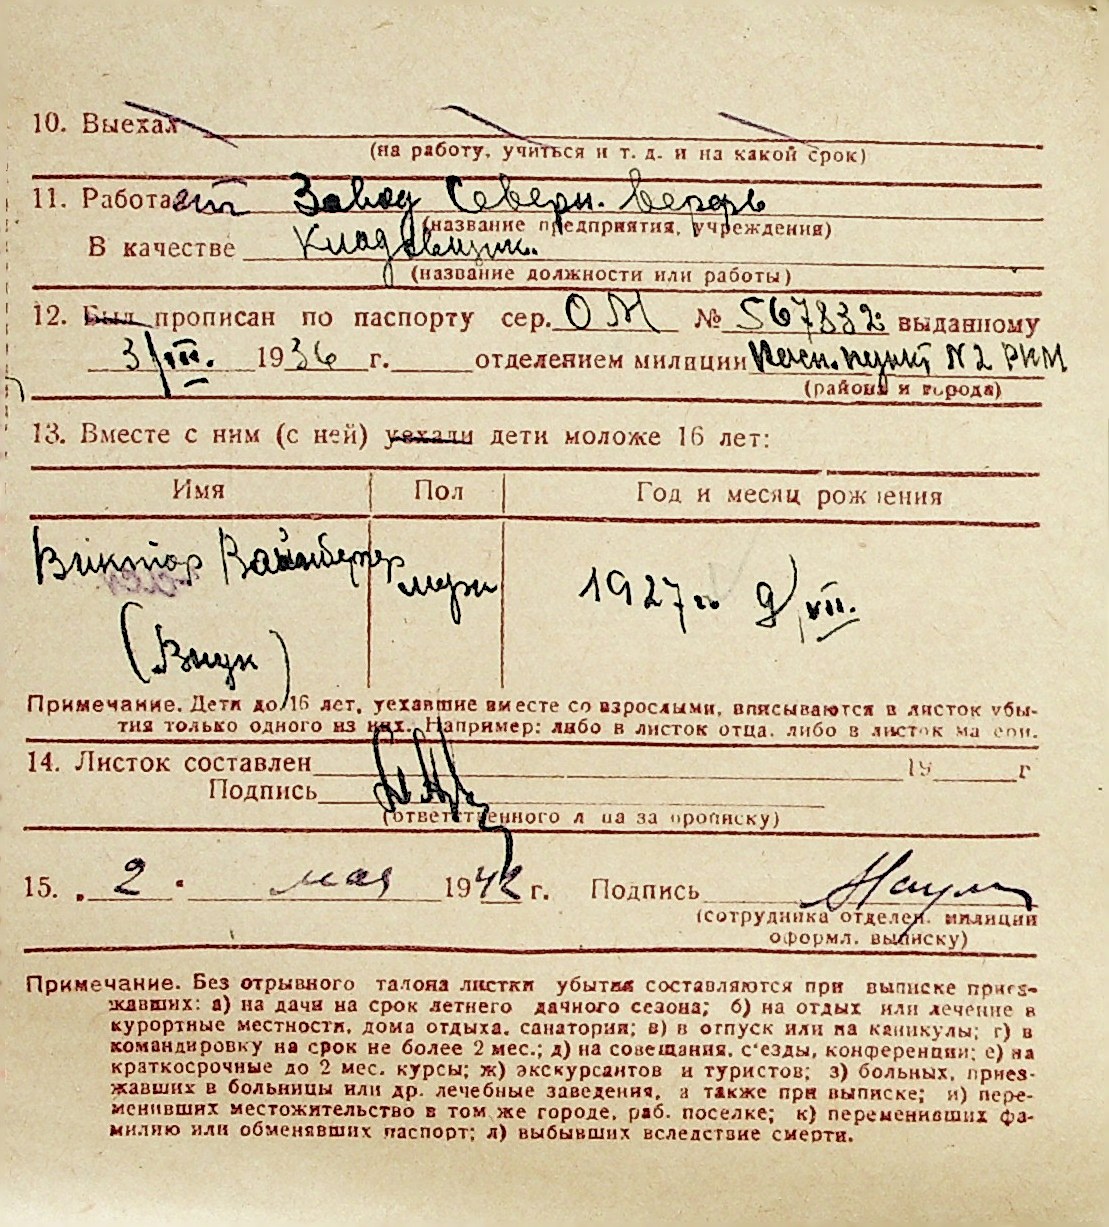 10. Выехал
(на работу, учиться и т. д. и на какой срок)
11. Работает Завод Северн. верфь
(название предприятия, учреждения)
В качестве Кладовщик.
(название должности или работы)
12. Был прописан по паспорту сер. ОМ № 567832 выданному
3/VIII. 1936 г. отделением милиции пункт N 2 РКМ
(района и города)
13. Вместе с ним (с ней) уехали дети моложе 16 лет:
Имя Пол Год и месяц рождения
Виктор Вайнбергер муж 1927 г. 9/VII.
(Внук)
Примечание. Дети до 16 лет, уехавшие вместе со взрослыми, вписываются в листок убы-
тия только одного из них. Например: либо в листок отца, либо в листок матери.
14. Листок составлен 19 г
Подпись
(ответственного лица за прописку)
15. „ 2 " мая 1942 г. Подпись
(сотрудника отделен. милиции
оформл. выписку)
Примечание. Без отрывного талона листки убытия составляются при выписке приез-
жавших: а) на дачи на срок летнего дачного сезона; б) на отдых или лечение в
курортные местности, дома отдыха, санатории; в) в отпуск или на каникулы; г) в
командировку на срок не более 2 мес.; д) на совещания, с'езды, конференции; е) на
краткосрочные до 2 мес. курсы; ж) экскурсантов и туристов; з) больных, приез-
жавших в больницы или др. лечебные заведения, а также при выписке; и) пере-
менивших местожительство в том же городе, раб. поселке; к) переменивших фа-
милию или обменявших паспорт; л) выбывших вследствие смерти.